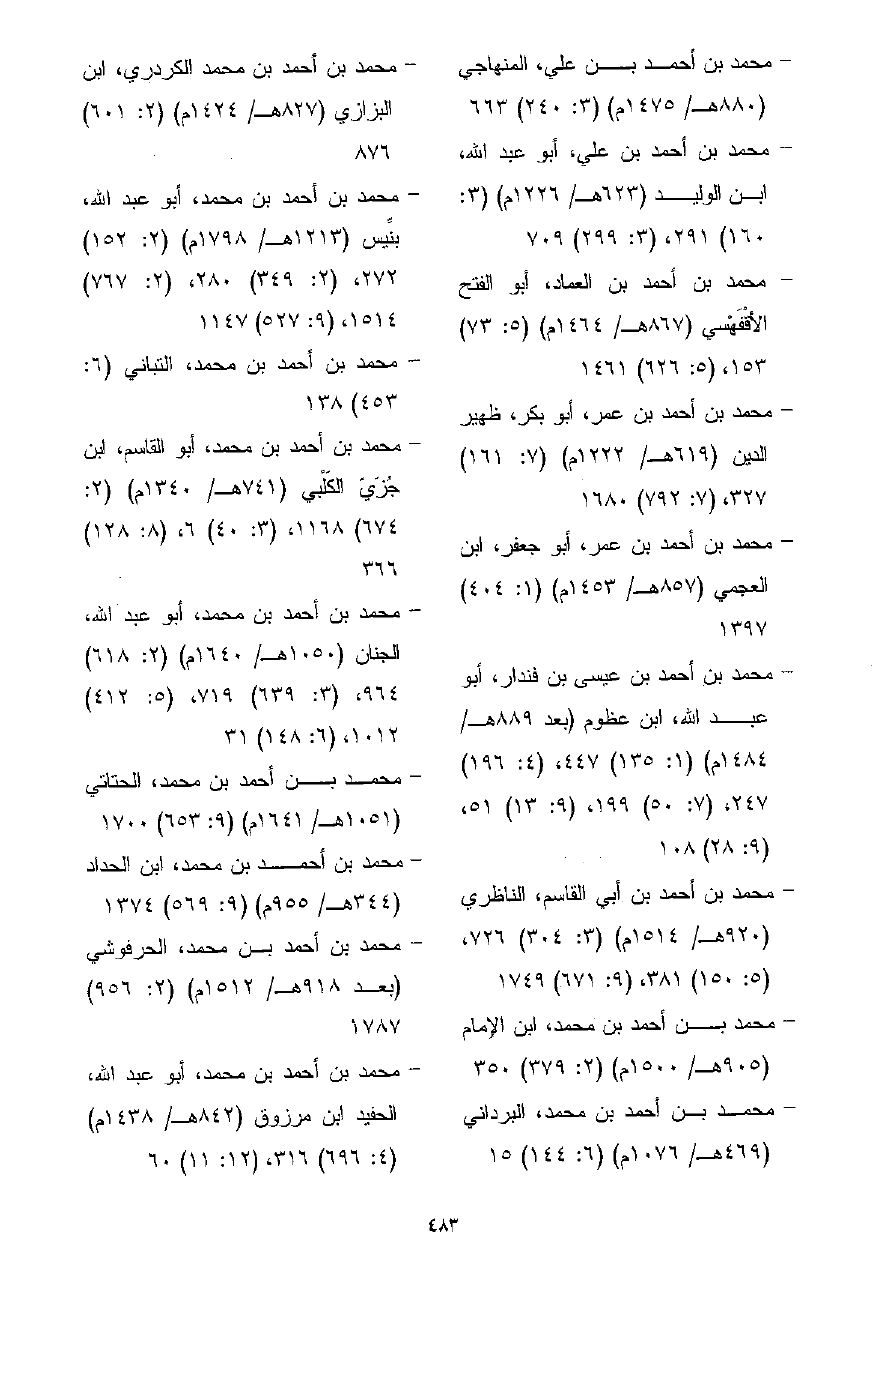 - محمد بن أحمد بن علي، المنهاجي
(٨٨٠هـ/ ١٤٧٥م) (٣: ٢٤٠) ٦٦٣
- محمد بن أحمد بن علي، أبو عبد الله،
ابن الوليد (٦٢٣هـ/ ١٢٢٦م) (٣:
١٦٠) ٢٩١، (٣: ٢٩٩) ٧٠٩
- محمد بن أحمد بن العماد، أبو الفتح
الأَقْفَهْسي (٨٦٧هـ/ ١٤٦٤م) (٥: ٧٣)
١٥٣، (٥: ٦٢٦) ١٤٦١
- محمد بن أحمد بن عمر، أبو بكر، ظهير
الدين (٦١٩هـ/ ١٢٢٢م) (٧: ١٦١)
٣٢٧، (٧: ٧٩٢) ١٦٨٠
- محمد بن أحمد بن عمر، أبو جعفر، ابن
العجمي (٨٥٧هـ/ ١٤٥٣م) (١: ٤٠٤)
١٣٩٧
- محمد بن أحمد بن عيسى بن فندار، أبو
عبد الله، ابن عظوم (بعد ٨٨٩هـ/
١٤٨٤م) (١: ١٣٥) ٤٤٧، (٤: ١٩٦)
٢٤٧، (٧: ٥٠) ١٩٩، (٩: ١٣) ٥١،
(٩: ٢٨) ١٠٨
- محمد بن أحمد بن أبي القاسم، الناظري
(٩٢٠هـ/ ١٥١٤م) (٣: ٣٠٤) ٧٢٦،
(٥: ١٥٠) ٣٨١، (٩: ٦٧١) ١٧٤٩
- محمد بن أحمد بن محمد، ابن الإمام
(٩٠٥هـ/ ١٥٠٠م) (٢: ٣٧٩) ٣٥٠
- محمد بن أحمد بن محمد، البرداني
(٤٦٩هـ/ ١٠٧٦م) (٦: ١٤٤) ١٥
- محمد بن أحمد بن محمد الكردري، ابن
البزازي (٨٢٧هـ/ ١٤٢٤م) (٢: ٦٠١)
٨٧٦
- محمد بن أحمد بن محمد، أبو عبد الله،
بنِّيس (١٢١٣هـ/ ١٧٩٨م) (٢: ١٥٢)
٢٧٢، (٢: ٣٤٩) ٢٨٠، (٢: ٧٦٧)
١٥١٤، (٩: ٥٢٧) ١١٤٧
- محمد بن أحمد بن محمد، التباني (٦:
٤٥٣) ١٣٨
- محمد بن أحمد بن محمد، أبو القاسم، ابن
جُزَيّ الكَلْبي (٧٤١هـ/ ١٣٤٠م) (٢:
٦٧٤) ١١٦٨، (٣: ٤٠) ٦، (٨: ١٢٨)
٣٦٦
- محمد بن أحمد بن محمد، أبو عبد الله،
الجنان (١٠٥٠هـ/ ١٦٤٠م) (٢: ٦١٨)
٩٦٤، (٣: ٦٣٩) ٧١٩، (٥: ٤١٢)
١٠١٢، (٦: ١٤٨) ٣١
- محمد بن أحمد بن محمد، الحتاتي
(١٠٥١هـ/ ١٦٤١م) (٩: ٦٥٣) ١٧٠٠
- محمد بن أحمد بن محمد، ابن الحداد
(٣٤٤هـ/ ٩٥٥م) (٩: ٥٦٩) ١٣٧٤
- محمد بن أحمد بن محمد، الحرفوشي
(بعد ٩١٨هـ/ ١٥١٢م) (٢: ٩٥٦)
١٧٨٧
- محمد بن أحمد بن محمد، أبو عبد الله،
الحفيد ابن مرزوق (٨٤٢هـ/ ١٤٣٨م)
(٤: ٦٩٦) ٣١٦، (١٢: ١١) ٦٠
٤٨٣